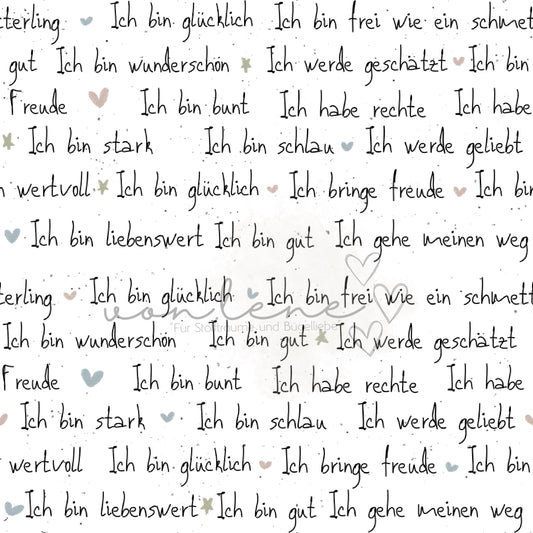 tterling Ich bin glücklich Ich bin frei wie ein schmett
gut Ich bin wunderschön Ich werde geschätzt Ich bin
Freude Ich bin bunt Ich habe rechte Ich habe
Ich bin stark Ich bin schlau Ich werde geliebt
n wertvoll Ich bin glücklich Ich bringe freude Ich bin
Ich bin liebenswert Ich bin gut Ich gehe meinen weg
tterling Ich bin glücklich Ich bin frei wie ein schmett
vonlene
Für Stoffträume und Bügelliebe
Ich bin wunderschön Ich bin gut Ich werde geschätzt
Freude Ich bin bunt Ich habe rechte Ich habe
Ich bin stark Ich bin schlau Ich werde geliebt
wertvoll Ich bin glücklich Ich bringe freude Ich bin
Ich bin liebenswert Ich bin gut Ich gehe meinen weg